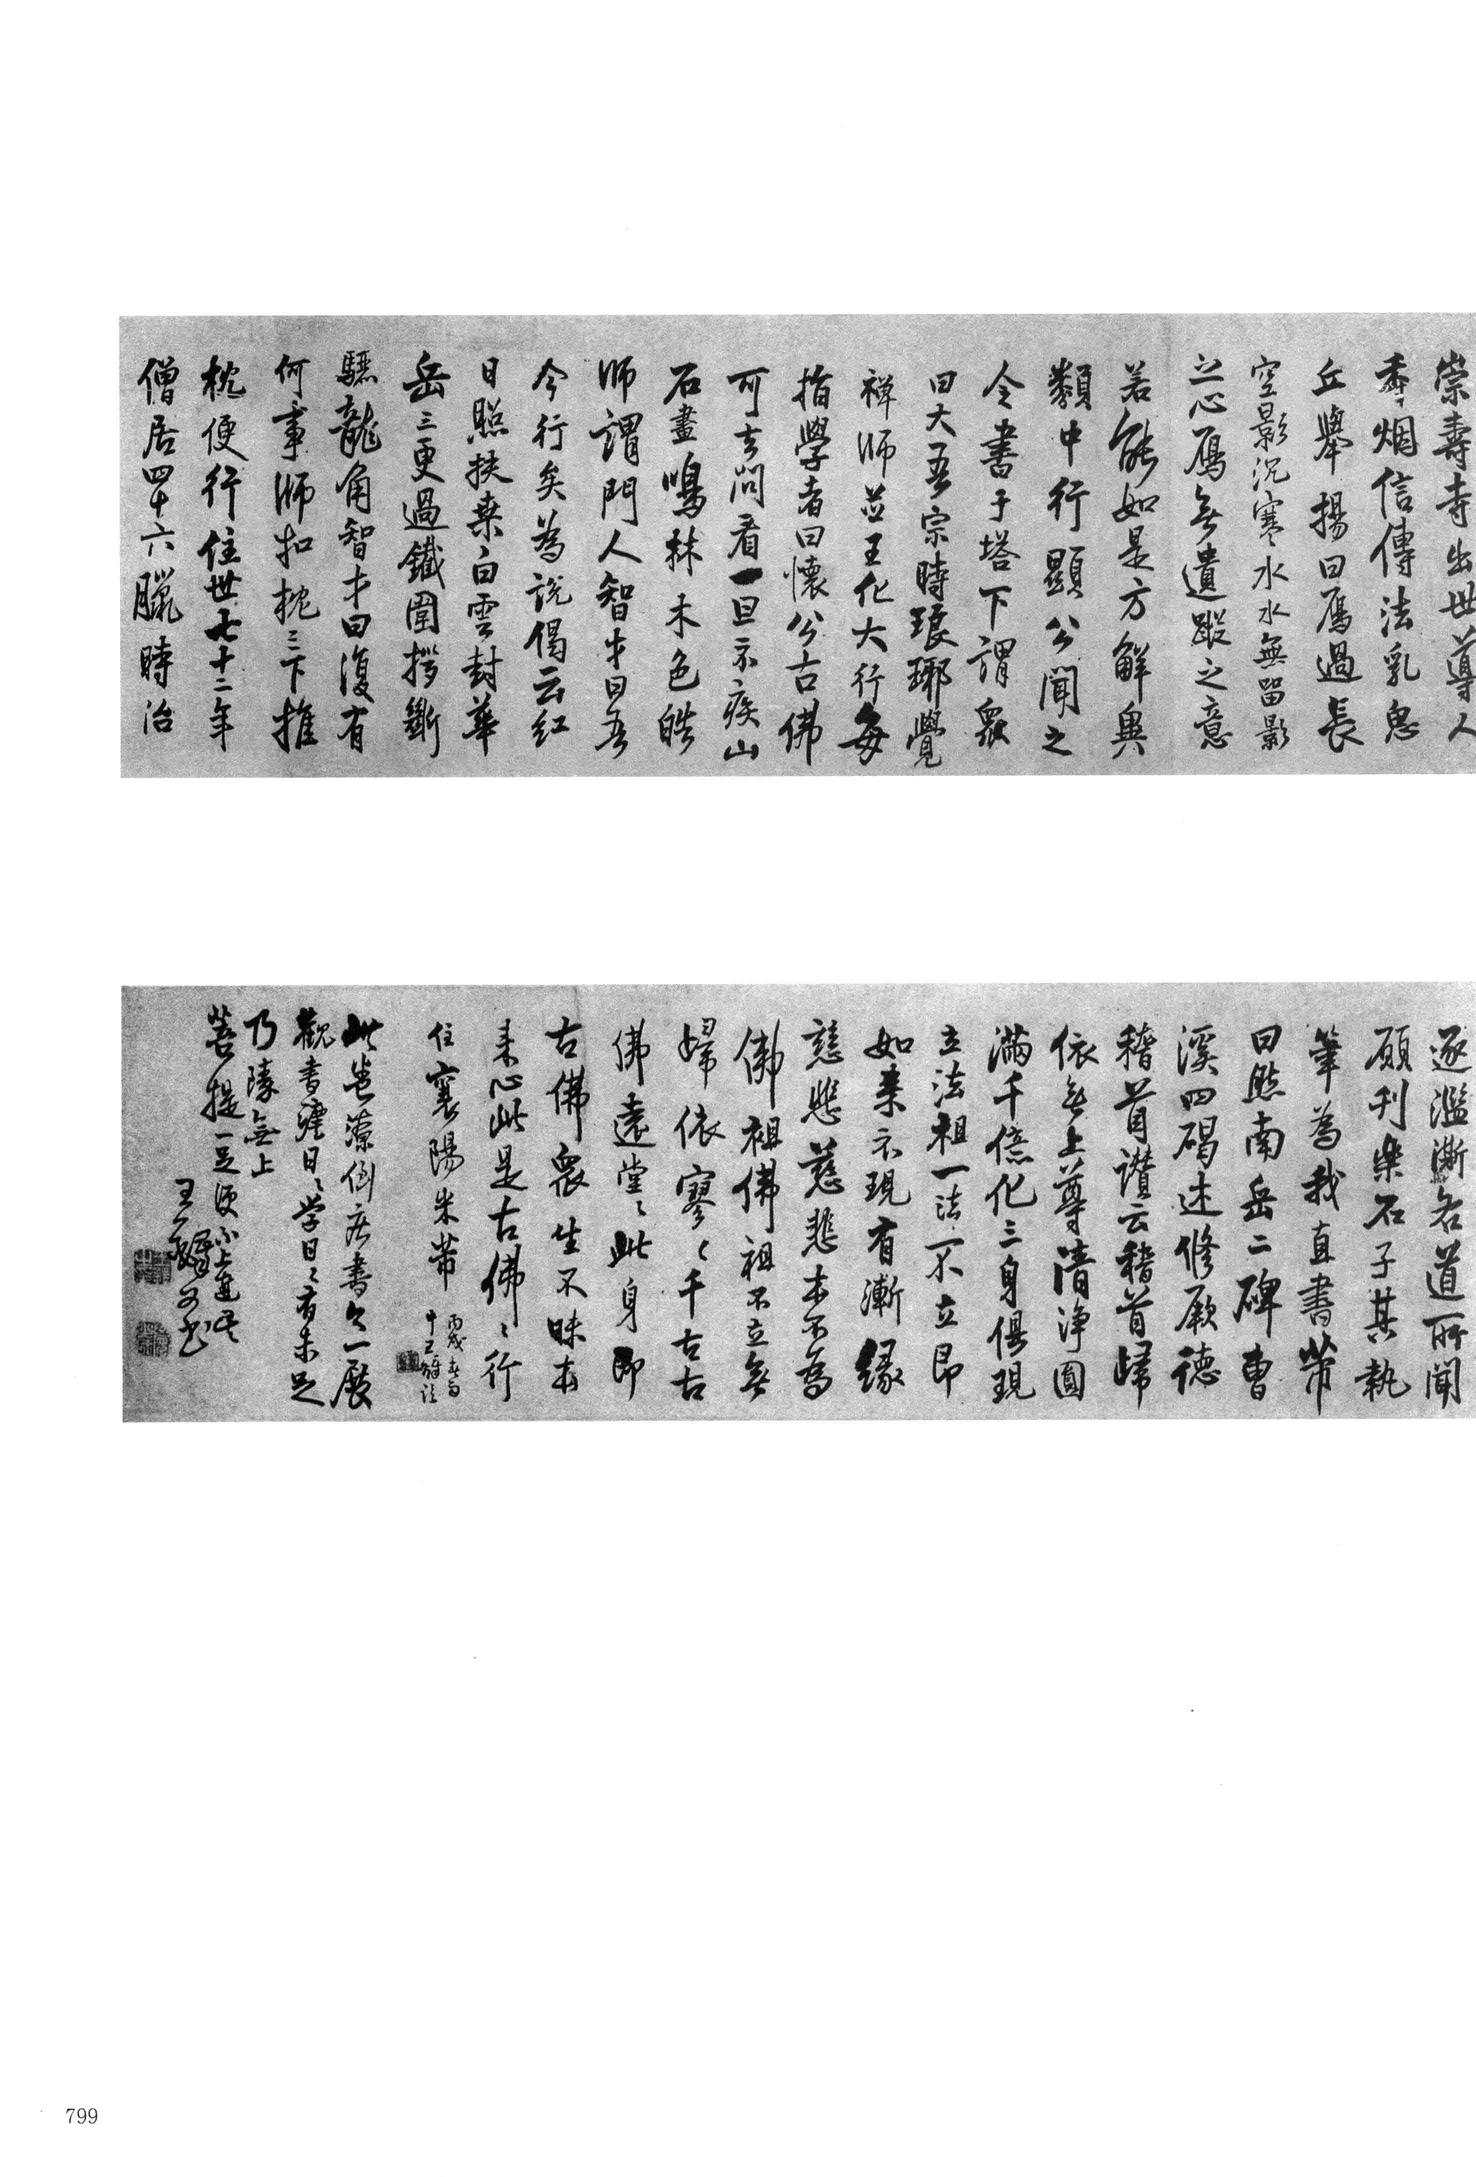 崇壽寺出世導人
香烟信傳法乳惠
丘舉揚曰鴈過長
空影沉寒水水無留影
之心鴈無遺蹤之意
若能如是方解異
類中行顯公聞之
令書于塔下謂衆
曰大吾宗時瑯琊覺
禅師並王化大行每
指學者曰懷公古佛
可去問看一旦示疾山
石畫鳴林木色皓
師謂門人智才曰吾
今行矣為説偈云紅
日照扶桒白雲封華
岳三更過鐵圍拶斷
驪龍角智才曰復有
何事師扣枕三下推
枕便行住世七十二年
僧居四十六臘時治
逐濫澌名道所聞
願刊樂石子其執
筆為我直書芾
曰然南岳二碑曹
溪四碣述修厥德
稽首讃云稽首歸
依無上尊清淨圓
滿千億化三身俱現
立法祖一法不立即
如来示現有漸緣
慈悲慈悲本不為
佛祖佛祖不立無
歸依寥々千古古
佛遠堂々此身即
古佛衆生不昧本
来心此是古佛々行
住襄陽朱芾
丙戌
此卷
觀書
乃 無上
菩提
王
799